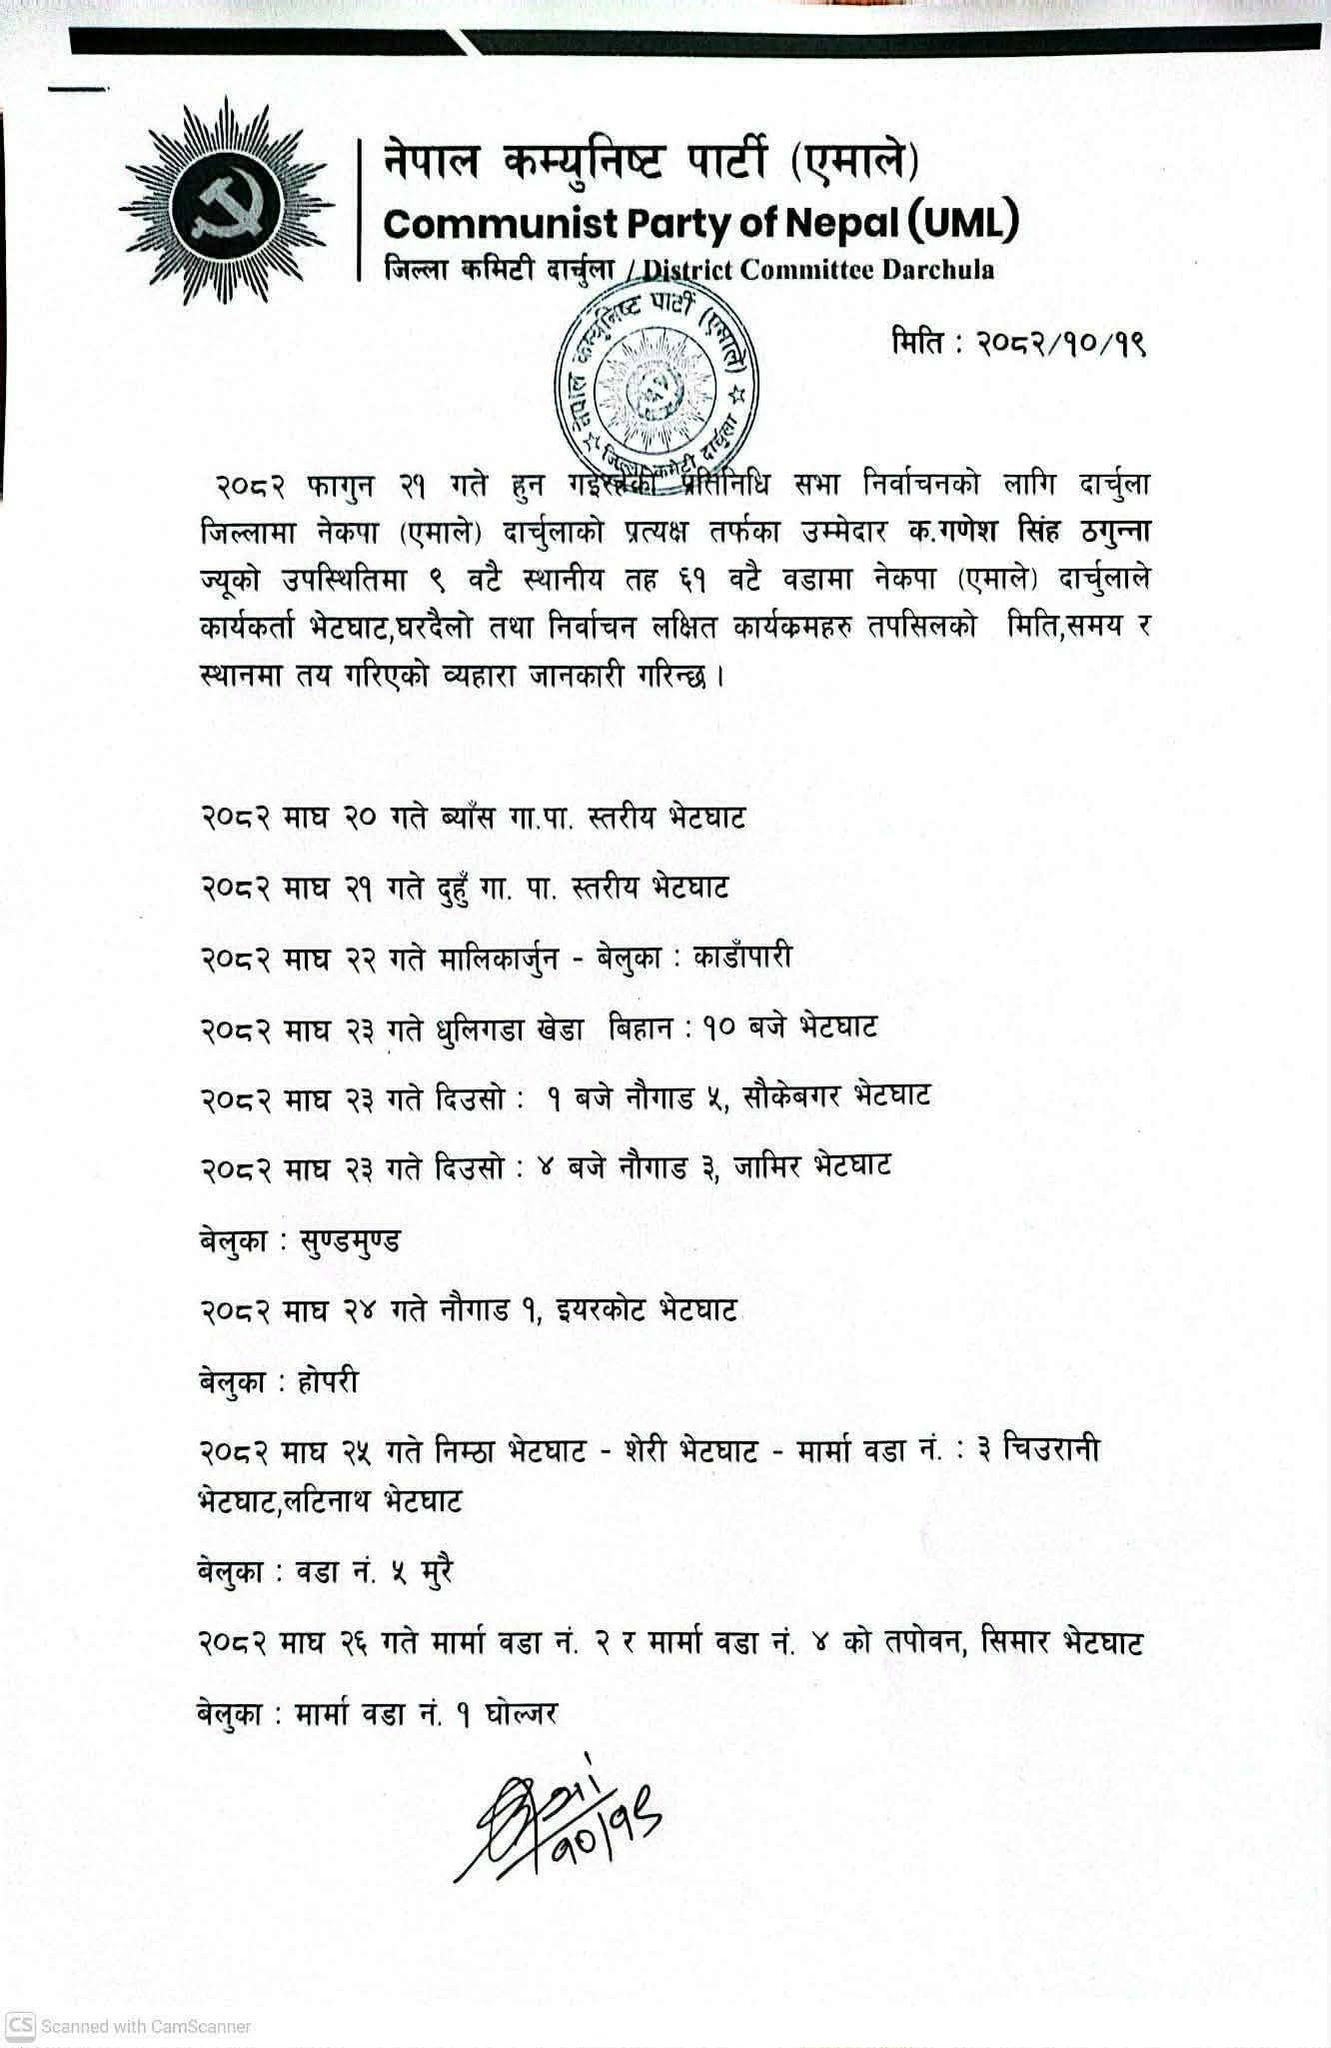 नेपाल कम्युनिष्ट पार्टी (एमाले)
Communist Party of Nepal (UML)
जिल्ला कमिटी दार्चुला / District Committee Darchula
नेपाल कम्युनिष्ट पार्टी (एमाले)
जिल्ला कमेटी दार्चुला
मिति : २०८२/१०/१९
२०८२ फागुन २१ गते हुन गइरहेको प्रतिनिधि सभा निर्वाचनको लागि दार्चुला
जिल्लामा नेकपा (एमाले) दार्चुलाको प्रत्यक्ष तर्फका उम्मेदार क.गणेश सिंह ठगुन्ना
ज्यूको उपस्थितिमा ९ वटै स्थानीय तह ६१ वटै वडामा नेकपा (एमाले) दार्चुलाले
कार्यकर्ता भेटघाट,घरदैलो तथा निर्वाचन लक्षित कार्यकमहरु तपसिलको मिति,समय र
स्थानमा तय गरिएको व्यहारा जानकारी गरिन्छ ।
२०८२ माघ २० गते ब्याँस गा.पा. स्तरीय भेटघाट
२०८२ माघ २१ गते दुहुँ गा. पा. स्तरीय भेटघाट
२०८२ माघ २२ गते मालिकार्जुन - बेलुका : काडाँपारी
२०८२ माघ २३ गते धुलिगडा खेडा बिहान : १० बजे भेटघाट
२०८२ माघ २३ गते दिउसो : १ बजे नौगाड ५, सौकेबगर भेटघाट
२०८२ माघ २३ गते दिउसो : ४ बजे नौगाड ३, जामिर भेटघाट
बेलुका : सुण्डमुण्ड
२०८२ माघ २४ गते नौगाड १, इयरकोट भेटघाट
बेलुका : होपरी
२०८२ माघ २५ गते निम्ठा भेटघाट - शेरी भेटघाट - मार्मा वडा नं. : ३ चिउरानी
भेटघाट,लटिनाथ भेटघाट
बेलुका : वडा नं. ५ मुरै
२०८२ माघ २६ गते मार्मा वडा नं. २ र मार्मा वडा नं. ४ को तपोवन, सिमार भेटघाट
बेलुका : मार्मा वडा नं. १ घोल्जर
१०/१९
CS Scanned with CamScanner